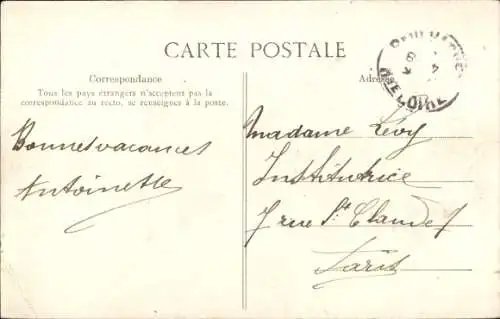 CARTE POSTALE
Correspondance
Tous les pays étrangers n'acceptent pas la
correspondance au recto, se renseigner à la poste.
Bonnes vacances
Antoinette
Adresse
Madame Lévy
Institutrice
7 rue St Claude 7
Paris
LOIRE